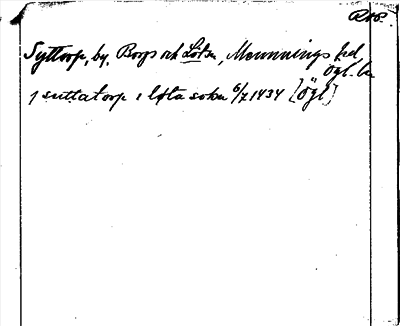 RAP.
Syttorp, by, Borgs och Löts sn, Memmings hd
Ögl. län
j suttatorp i løta sokn 6/7 1434 [Ögl]